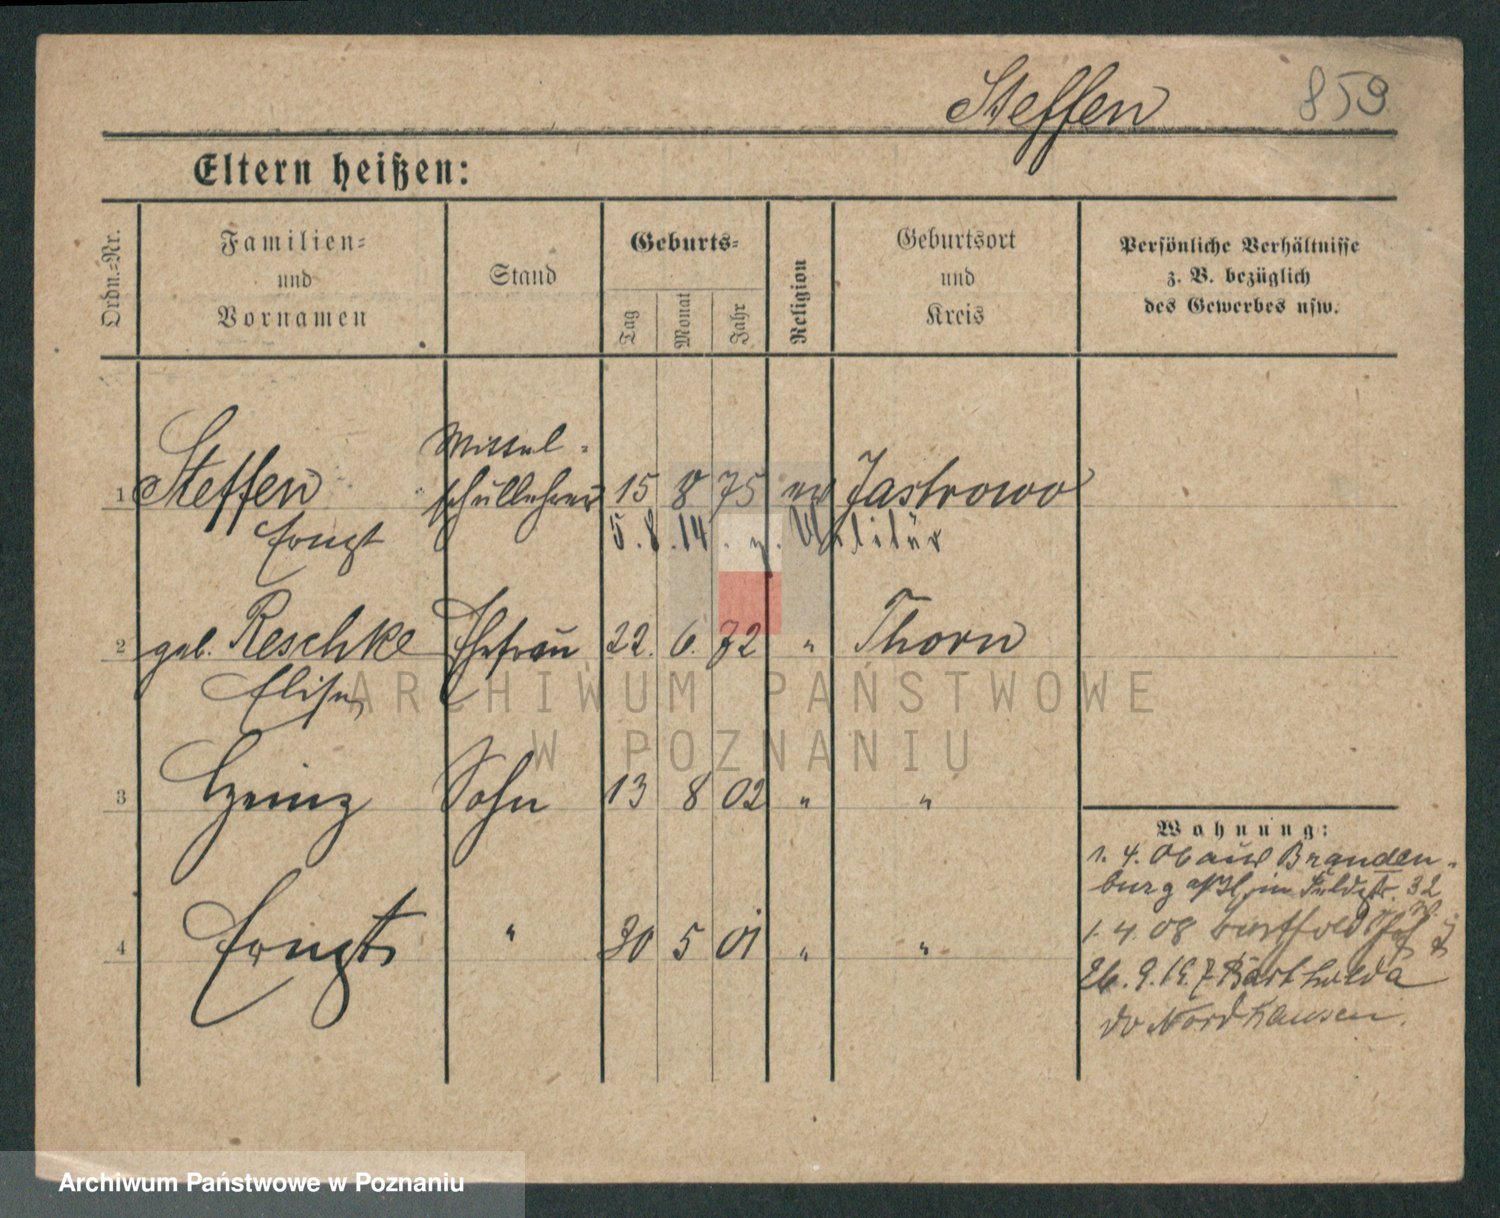 Steffen 859
Eltern heißen:
Ordn.-Nr.
Familien-
und
Vornamen
Stand
Geburts-
Tag
Monat
Jahr
Religion
Geburtsort
und
Kreis
Persönliche Verhältnisse
z. B. bezüglich
des Gewerbes usw.
Mittel-
1 Steffen schullehrer 15 8 75 ev Jastrowo
Ernst 5.8.14. z. Militär
2 geb. Reschke Ehefrau 22. 6. 72 " Thorn
Elise
3 Heinz Sohn 13 8 02 " "
4 Ernst " 30 5 01 " "
Wohnung:
1. 4. 06 aus Branden-
burg a/H. in Feldstr. 32
1. 4. 08
26. 9. 19. Bartholda
do Nordhausen.
ARCHIWUM PAŃSTWOWE
W POZNANIU
Archiwum Państwowe w Poznaniu